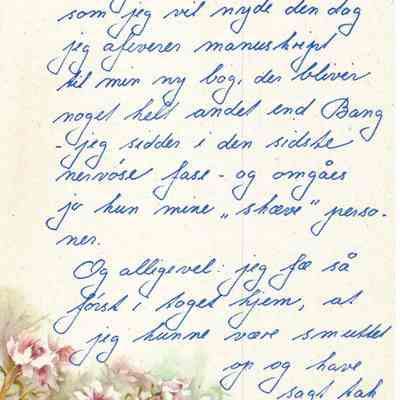 som jeg vil nyde den dag
jeg afleverer manuskript
til min ny bog, der bliver
noget helt andet end Bang
- jeg sidder i den sidste
nervöse fase - og omgåes
jo kun mine „skæve" perso-
ner.
Og alligevel: jeg så
først i toget hjem, at
jeg kunne være smuttet
op og have
sagt tak